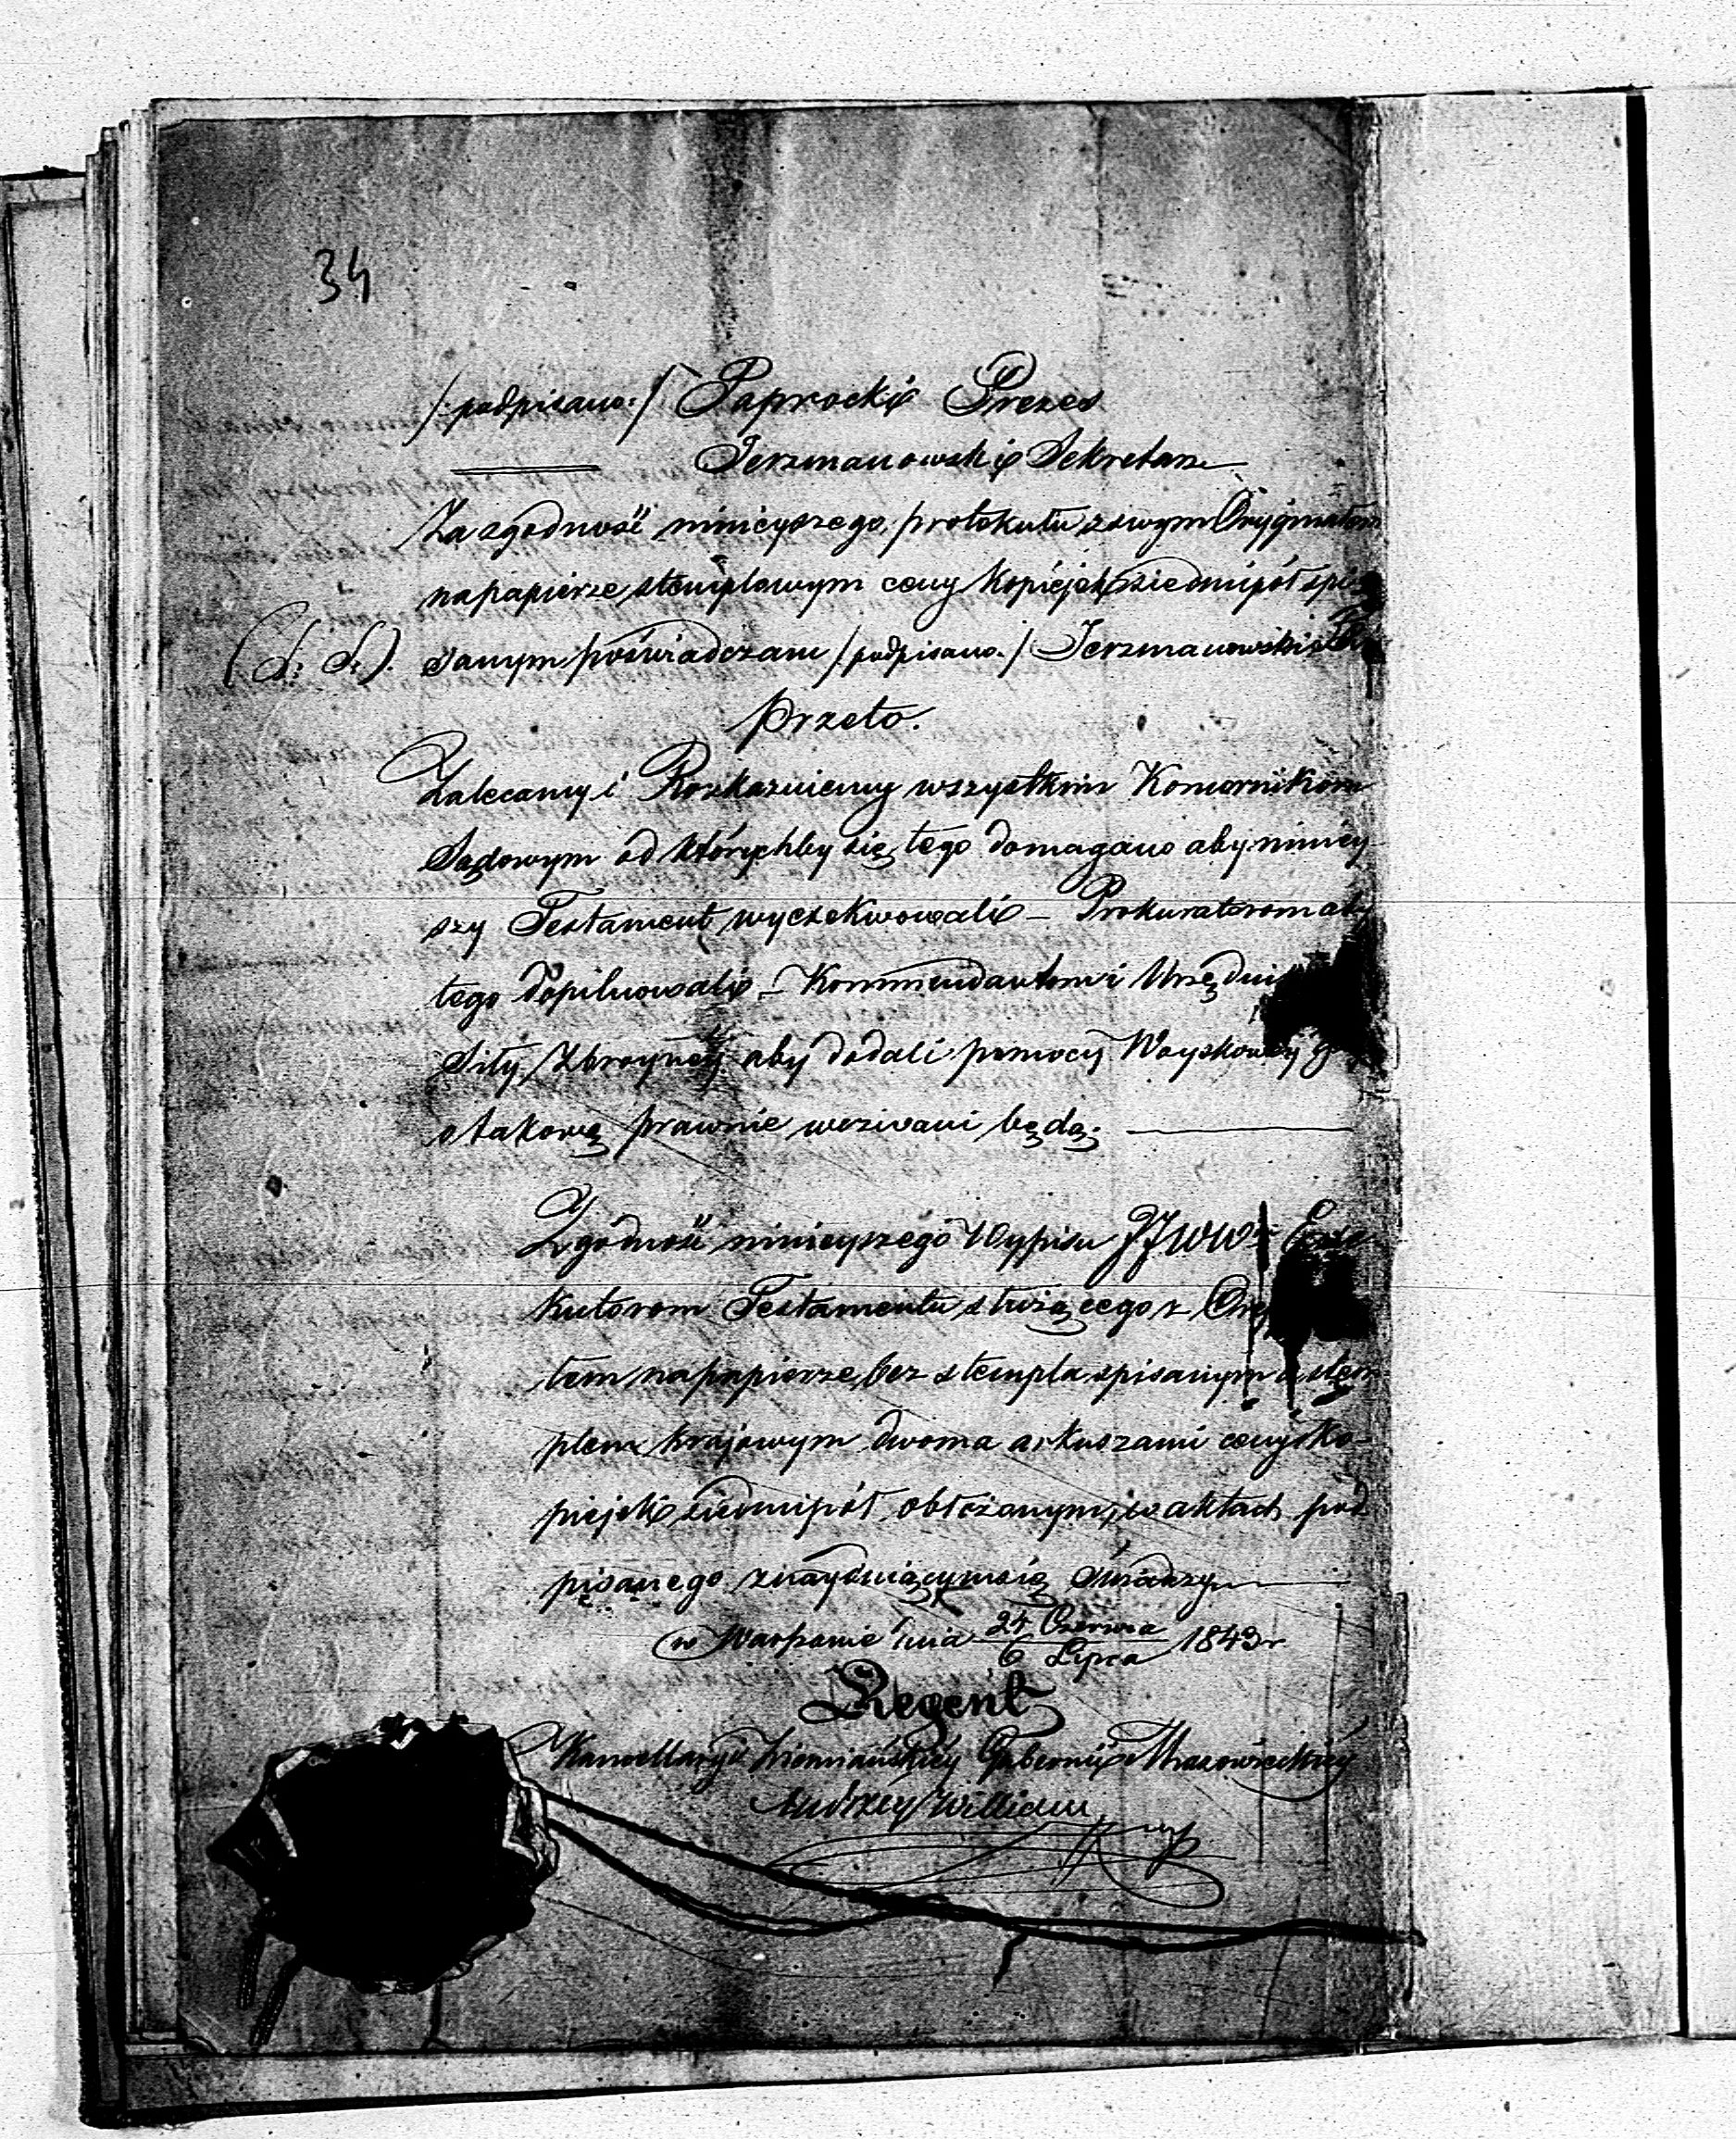 34
/:podpisano:/ Paprocki Prezes
Jerzmanowski Sekretarz
Za zgodność ninieyszego protokułu zswym Oryginałem
na papierze stemplowym ceny kopiejek siedmipół spi
(L. S.). sanym poświadczam /:podpisano:/ Jerzmanowski
przeto.
Zalecamy i Rozkazuiemy wszystkim Komornikom
Sądowym od którychby się tego domagano aby niniey
szy Testament wyexekwowali – Prokuratorom aby
tego dopilnowali – Kommendantom i Urzędni
Siły Zbroyney aby dodali pomocy Woyskowey
o takową prawnie wezwani będą.
Zgodność ninieyszego Wypisu JJWW Exe
kutorom Testamentu służącego z
łem na papierze bez stempla spisanym a stem
plem krajowym dwoma arkuszami ceny ko-
piejek siedmipół obłożonym, w aktach pod
pisanego znayduiącym się świadczy
w Warszawie dnia 24 Czerwca / 6 Lipca 1843 r
Regent
Kancellaryi Ziemiańskiey Gubernii Mazowieckiey
Andrzey William